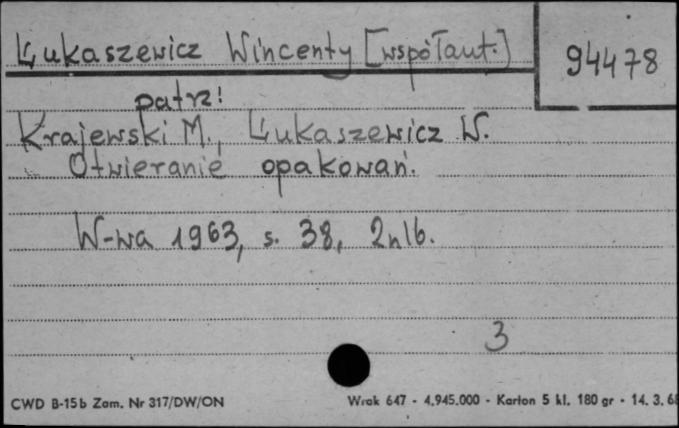 Łukaszewicz Wincenty [współaut.]
94478
patrz!
Krajewski M., Łukaszewicz W.
Otwieranie opakowań.
W-wa 1963, s. 38, 2nlb.
3
CWD B-15b Zam. Nr 317/DW/ON
Wrak 647 - 4.945.000 - Karton 5 kl. 180 gr - 14. 3. 68